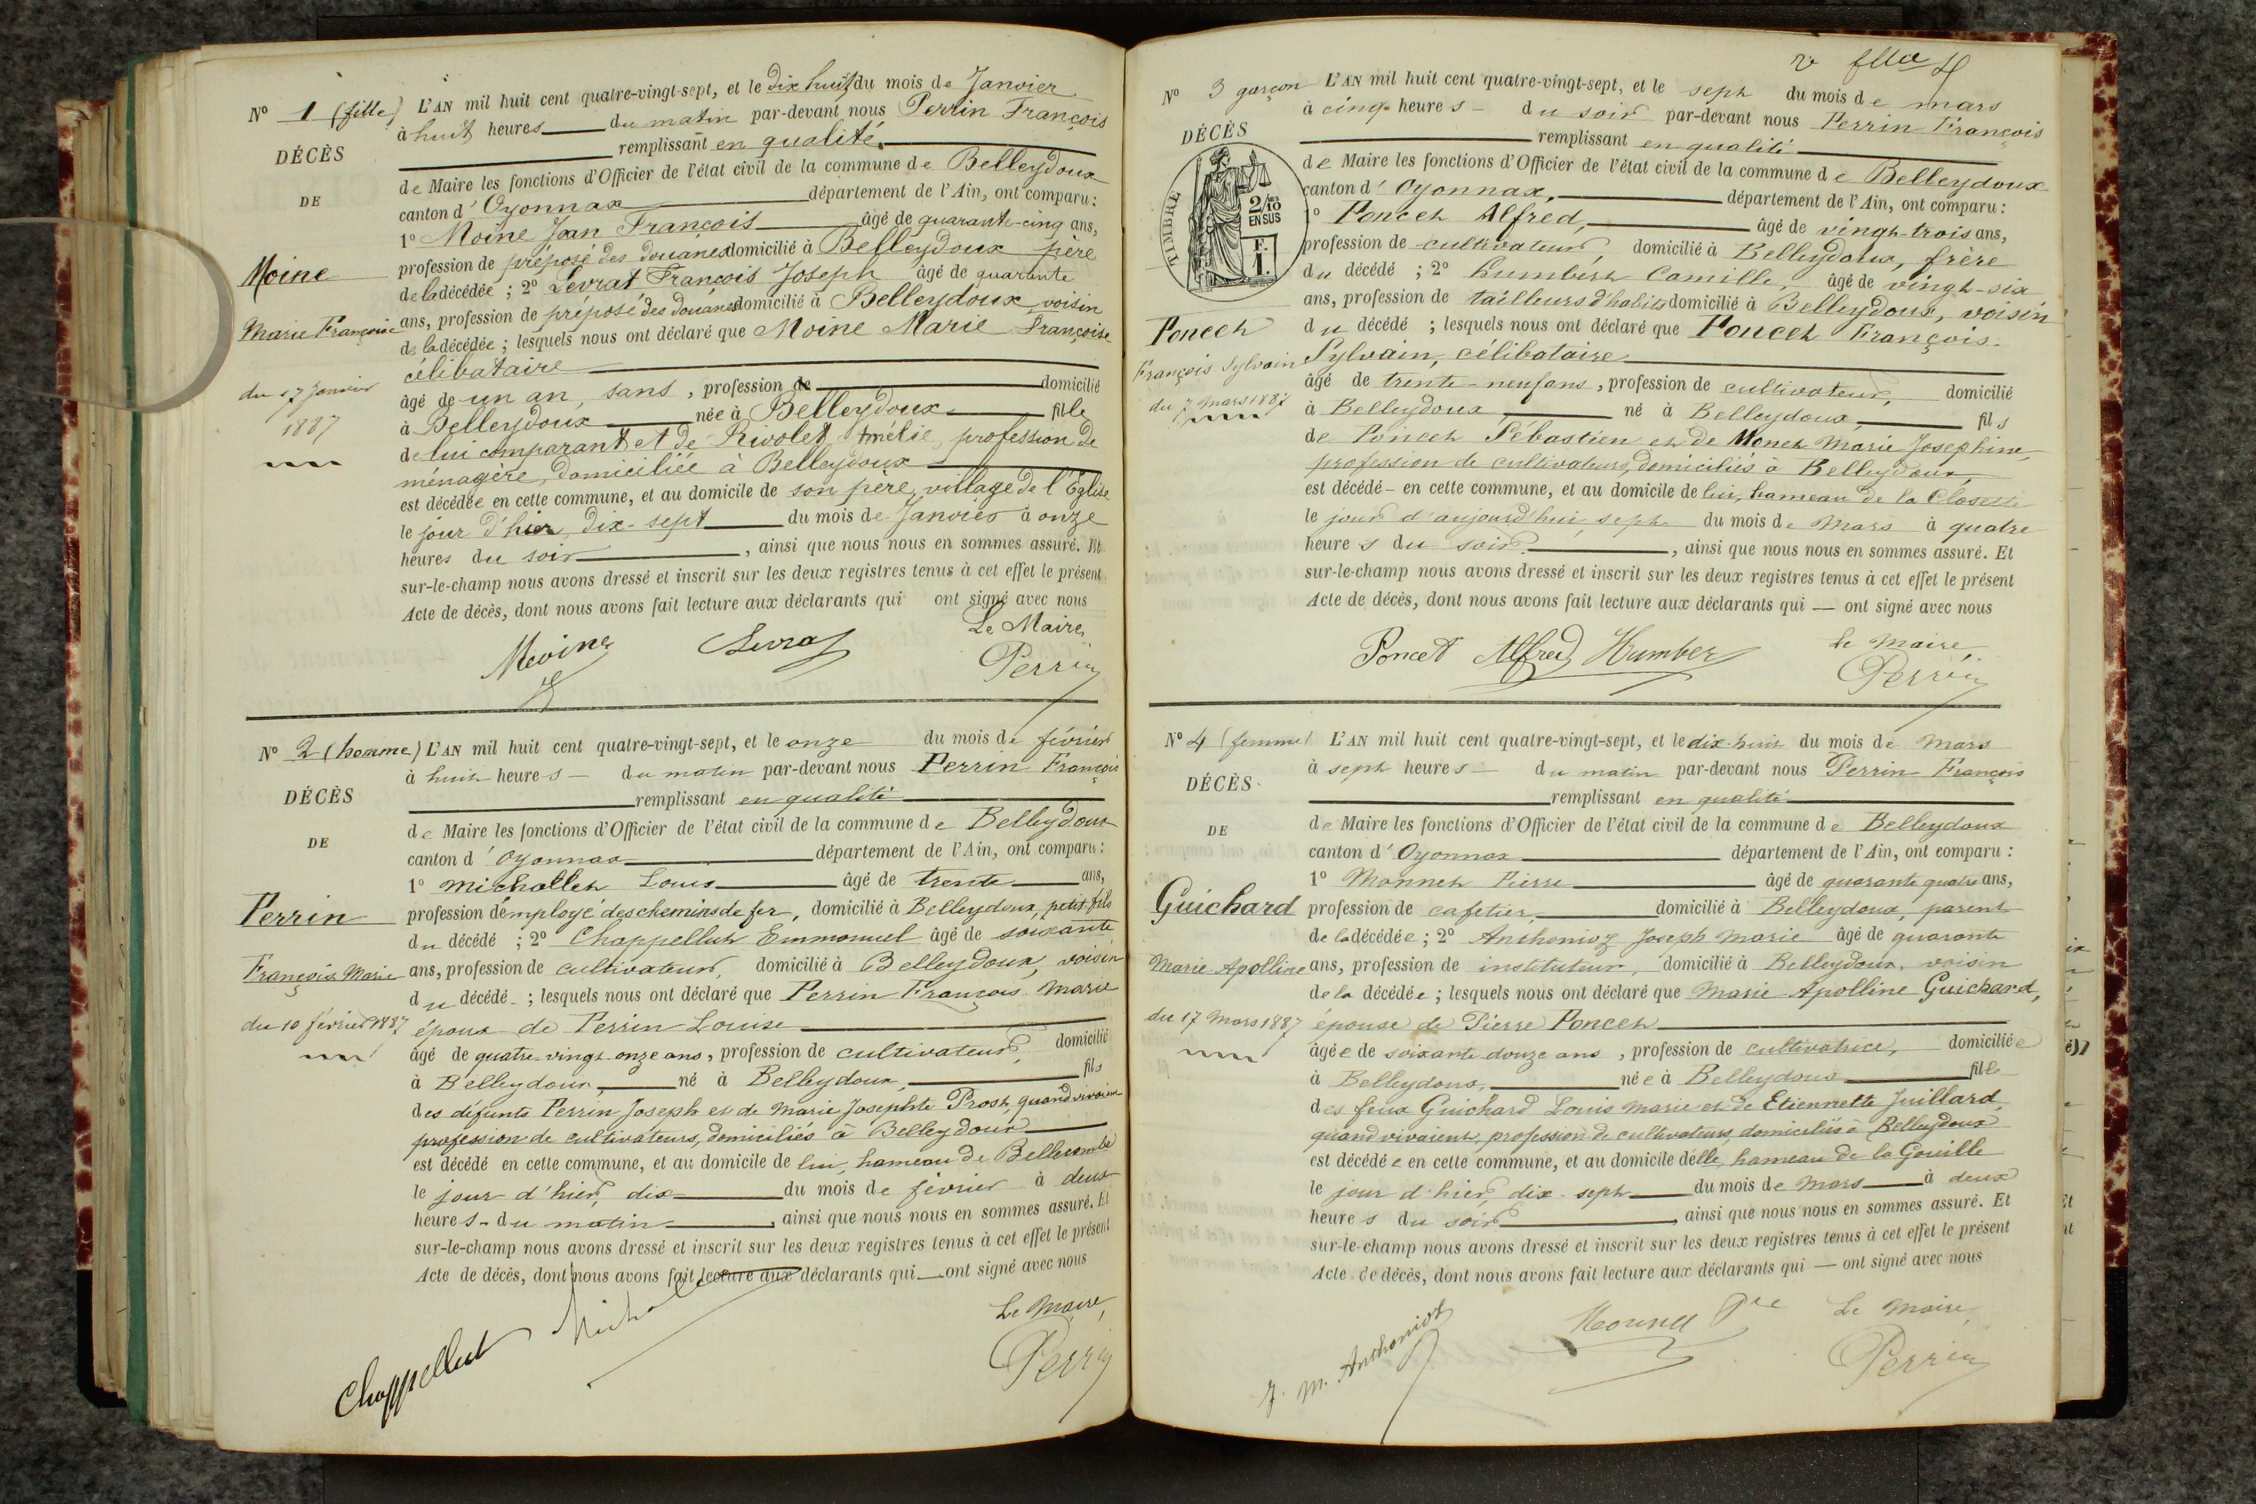 N° 1 (fille)
DÉCÈS
DE
Moine
Marie Françoise
du 17 Janvier
1887
L'AN mil huit cent quatre-vingt-sept, et le dix huit du mois de Janvier
à huit heures du matin par-devant nous Perrin François
remplissant en qualité
de Maire les fonctions d'Officier de l'état civil de la commune de Belleydoux
canton d'Oyonnax département de l'Ain, ont comparu :
1° Moine Jean François âgé de quarant-cinq ans,
profession de préposé des douanes domicilié à Belleydoux père
de la décédée ; 2° Levrat François Joseph âgé de quarante
ans, profession de préposé des douanes domicilié à Belleydoux voisin
de la décédée ; lesquels nous ont déclaré que Moine Marie Françoise
célibataire
âgé de un an, sans, profession de domicilié
à Belleydoux née à Belleydoux fille
de lui comparant et de Rivolet Amélie, profession de
ménagère, domiciliée à Belleydoux
est décédée en cette commune, et au domicile de son père, village de l'Église
le jour d'hier, dix-sept du mois de Janvier à onze
heures du soir, ainsi que nous nous en sommes assuré. Et
sur-le-champ nous avons dressé et inscrit sur les deux registres tenus à cet effet le présent
Acte de décès, dont nous avons fait lecture aux déclarants qui ont signé avec nous
Le Maire,
Moine Levrat Perrin
N° 2 (homme)
DÉCÈS
DE
Perrin
François Marie
du 10 février 1887
L'AN mil huit cent quatre-vingt-sept, et le onze du mois de février
à huit heures du matin par-devant nous Perrin François
remplissant en qualité
de Maire les fonctions d'Officier de l'état civil de la commune de Belleydoux
canton d'Oyonnax département de l'Ain, ont comparu :
1° Michallet Louis âgé de trente ans,
profession d'employé des chemins de fer, domicilié à Belleydoux, petit fils
du décédé ; 2° Chappellut Emmanuel âgé de soixante
ans, profession de cultivateur, domicilié à Belleydoux, voisin
du décédé ; lesquels nous ont déclaré que Perrin François Marie
époux de Perrin Louise
âgé de quatre-vingt-onze ans, profession de cultivateur, domicilié
à Belleydoux, né à Belleydoux, fils
des défunts Perrin Joseph et de Marie Josephte Prost, quand vivaient
profession de cultivateurs, domiciliés à Belleydoux
est décédé en cette commune, et au domicile de lui, hameau de Bellecombe
le jour d'hier, dix du mois de février à deux
heures du matin, ainsi que nous nous en sommes assuré. Et
sur-le-champ nous avons dressé et inscrit sur les deux registres tenus à cet effet le présent
Acte de décès, dont nous avons fait lecture aux déclarants qui ont signé avec nous
Le Maire,
Chappellut Michallet Perrin
N° 3 garçon
DÉCÈS
TIMBRE
2/10
EN SUS
F.
1.
Poncet
François Sylvain
du 7 mars 1887
L'AN mil huit cent quatre-vingt-sept, et le sept du mois de mars
à cinq heures du soir par-devant nous Perrin François
remplissant en qualité
de Maire les fonctions d'Officier de l'état civil de la commune de Belleydoux
canton d'Oyonnax, département de l'Ain, ont comparu :
1° Poncet Alfred, âgé de vingt-trois ans,
profession de cultivateur, domicilié à Belleydoux, frère
du décédé ; 2° Humbert Camille, âgé de vingt-six
ans, profession de tailleurs d'habits domicilié à Belleydoux, voisin
du décédé ; lesquels nous ont déclaré que Poncet François
Sylvain, célibataire
âgé de trente-neuf ans, profession de cultivateur, domicilié
à Belleydoux, né à Belleydoux, fils
de Poncet Sébastien et de Monet Marie Josephine,
profession de cultivateurs, domiciliés à Belleydoux,
est décédé en cette commune, et au domicile de lui, hameau de la Closette
le jour d'aujourd'hui, sept du mois de Mars à quatre
heures du soir, ainsi que nous nous en sommes assuré. Et
sur-le-champ nous avons dressé et inscrit sur les deux registres tenus à cet effet le présent
Acte de décès, dont nous avons fait lecture aux déclarants qui — ont signé avec nous
Le Maire,
Poncet Alfred Humber Perrin
N° 4 (femme)
DÉCÈS
DE
Guichard
Marie Apolline
du 17 Mars 1887
L'AN mil huit cent quatre-vingt-sept, et le dix-huit du mois de Mars
à sept heures du matin par-devant nous Perrin François
remplissant en qualité
de Maire les fonctions d'Officier de l'état civil de la commune de Belleydoux
canton d'Oyonnax département de l'Ain, ont comparu :
1° Monnet Pierre âgé de quarante quatre ans,
profession de cafetier, domicilié à Belleydoux, parent
de la décédée ; 2° Anthonioz Joseph Marie âgé de quarante
ans, profession de instituteur, domicilié à Belleydoux, voisin
de la décédée ; lesquels nous ont déclaré que Marie Apolline Guichard,
épouse de Pierre Poncet
âgée de soixante douze ans, profession de cultivatrice, domiciliée
à Belleydoux, née à Belleydoux fille
des feux Guichard Louis Marie et de Etiennette Juillard,
quand vivaient, profession de cultivateurs, domiciliés à Belleydoux
est décédée en cette commune, et au domicile d'elle, hameau de la Gouille
le jour d'hier, dix-sept du mois de Mars à deux
heures du soir, ainsi que nous nous en sommes assuré. Et
sur-le-champ nous avons dressé et inscrit sur les deux registres tenus à cet effet le présent
Acte de décès, dont nous avons fait lecture aux déclarants qui — ont signé avec nous
Le Maire,
J. M. Anthonioz Monnet Pre Perrin